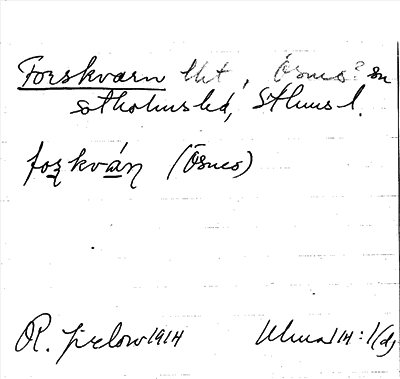 Forskvarn tkt, Ösmo? sn
Sotholms hd, Sthms l.
forkván (Ösmo)
R. Jirlow 1914
Ulma 114:1(d)